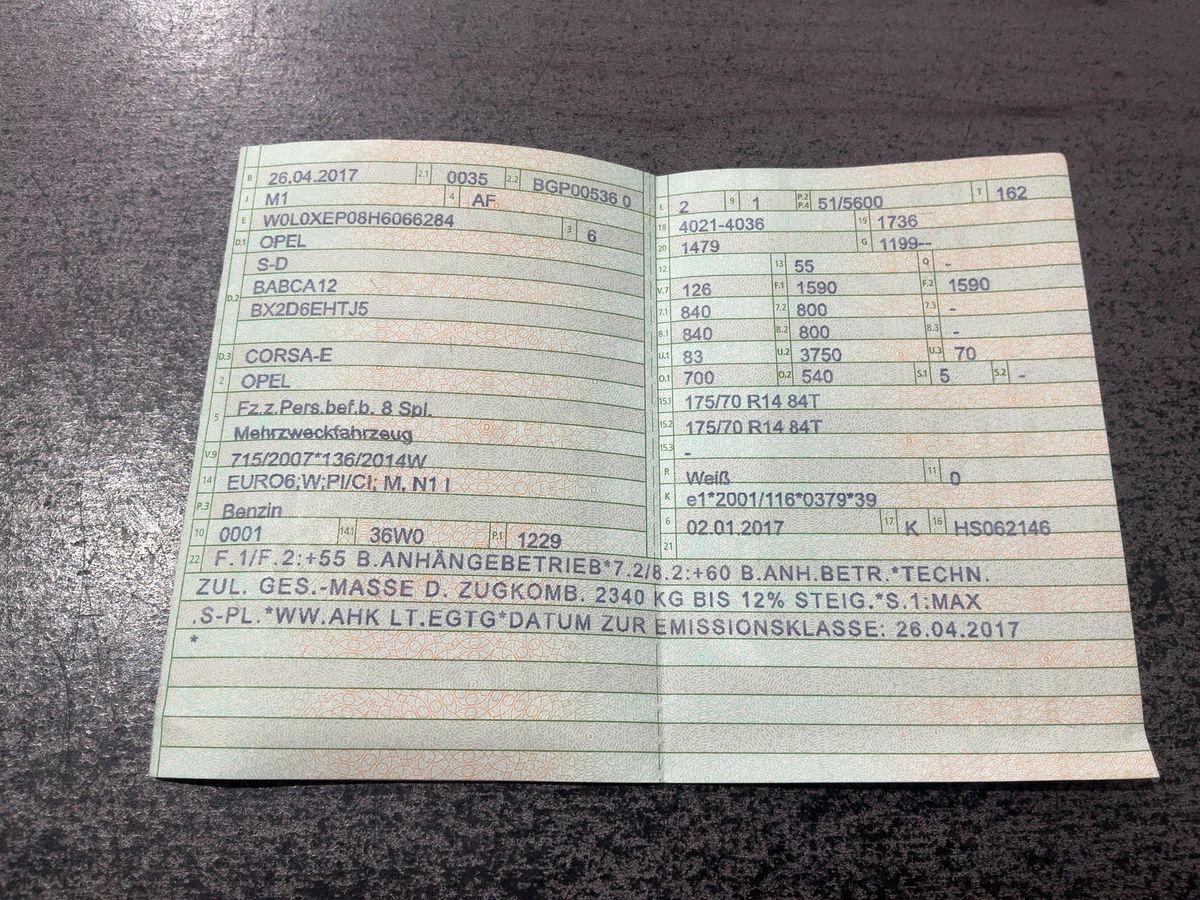 B 26.04.2017 2.1 0035 2.2 BGP00536 0
J M1 4 AF
E W0L0XEP08H6066284 3 6
D.1 OPEL
S-D
D.2 BABCA12
BX2D6EHTJ5
D.3 CORSA-E
2 OPEL
5 Fz.z.Pers.bef.b. 8 Spl.
Mehrzweckfahrzeug
V.9 715/2007*136/2014W
14 EURO6;W;PI/CI; M, N1 I
P.3 Benzin
10 0001 14.1 36W0 P.1 1229
L 2 9 1 P.2 P.4 51/5600 T 162
18 4021-4036 19 1736
20 1479 G 1199--
12 13 55 Q -
V.7 126 F.1 1590 F.2 1590
7.1 840 7.2 800 7.3 -
8.1 840 8.2 800 8.3 -
U.1 83 U.2 3750 U.3 70
O.1 700 O.2 540 S.1 5 S.2 -
15.1 175/70 R14 84T
15.2 175/70 R14 84T
15.3 -
R Weiß 11 0
K e1*2001/116*0379*39
6 02.01.2017 17 K 16 HS062146
21
22 F.1/F.2:+55 B.ANHÄNGEBETRIEB*7.2/8.2:+60 B.ANH.BETR.*TECHN.
ZUL. GES.-MASSE D. ZUGKOMB. 2340 KG BIS 12% STEIG.*S.1:MAX
.S-PL.*WW.AHK LT.EGTG*DATUM ZUR EMISSIONSKLASSE: 26.04.2017
*